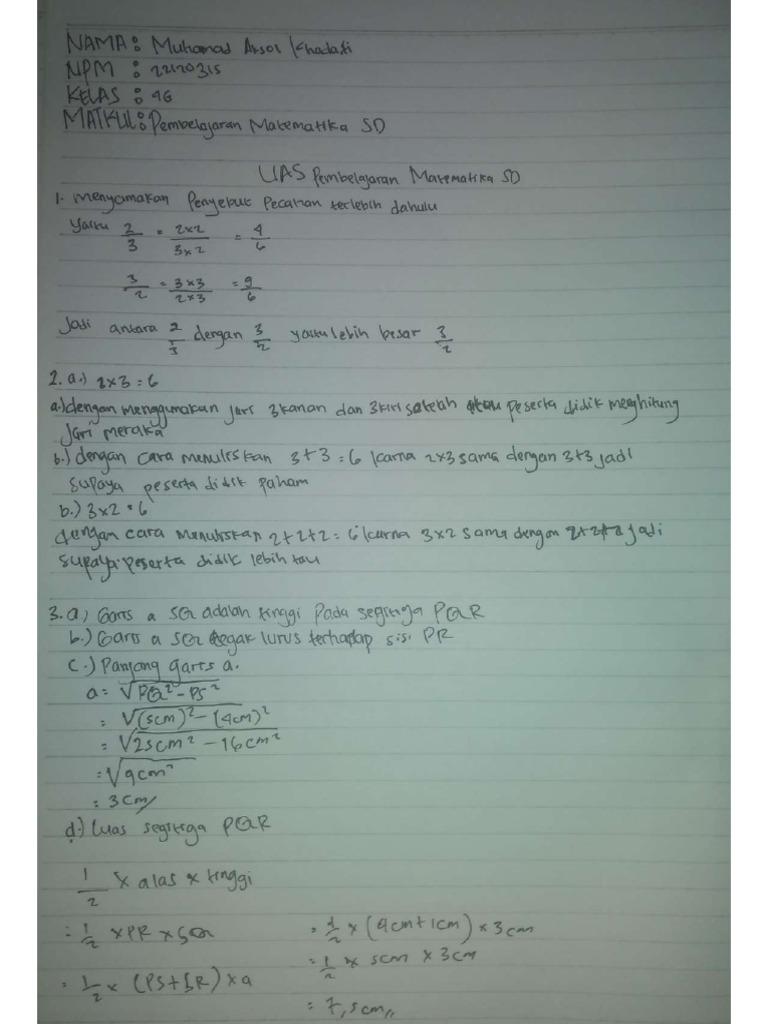 NAMA : Muhamad Aksol Khadafi
NPM : 22120315
KELAS : 4G
MATKUL : Pembelajaran Matematika SD
UAS Pembelajaran Matematika SD
1. Menyamakan Penyebut Pecahan terlebih dahulu
Yaitu 2/3 = 2x2/3x2 = 4/6
3/2 = 3x3/2x3 = 9/6
Jadi antara 2/3 dengan 3/2 yaitu lebih besar 3/2
2. a.) 2x3 = 6
a.) dengan menggunakan jari 3 kanan dan 3 kiri setelah itu peserta didik menghitung
jari meraka
b.) dengan cara menuliskan 3+3 = 6 karna 2x3 sama dengan 3+3 jadi
supaya peserta didik paham
b.) 3x2 = 6
dengan cara menuliskan 2+2+2 = 6 karna 3x2 sama dengan 2+2+2 jadi
supaya peserta didik lebih tau
3. a) Garis a SQ adalah tinggi pada segitiga PQR
b.) Garis a SQ tegak lurus terhadap sisi PR
c.) Panjang garis a.
a = √PQ² - PS²
= √(5cm)² - (4cm)²
= √25cm² - 16cm²
= √9cm²
= 3cm
d.) Luas segitiga PQR
1/2 x alas x tinggi
= 1/2 x PR x SQ
= 1/2 x (PS+SR) x a
= 1/2 x (4cm+1cm) x 3cm
= 1/2 x 5cm x 3cm
= 7,5cm,,